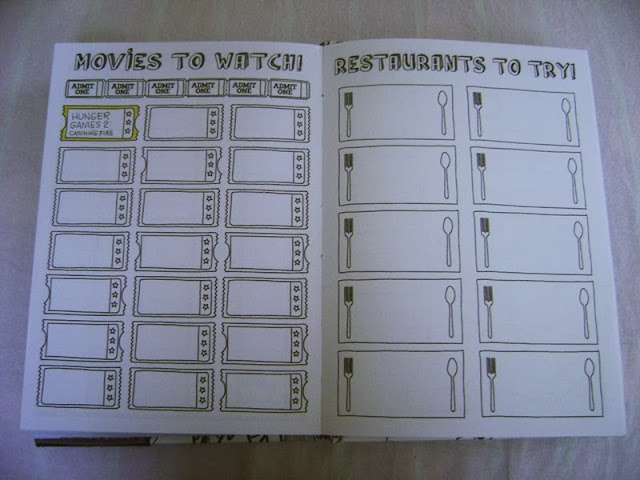 MOVIES TO WATCH!
ADMIT ONE ADMIT ONE ADMIT ONE ADMIT ONE ADMIT ONE ADMIT ONE
HUNGER
GAMES 2
CATCHING FIRE
RESTAURANTS TO TRY!